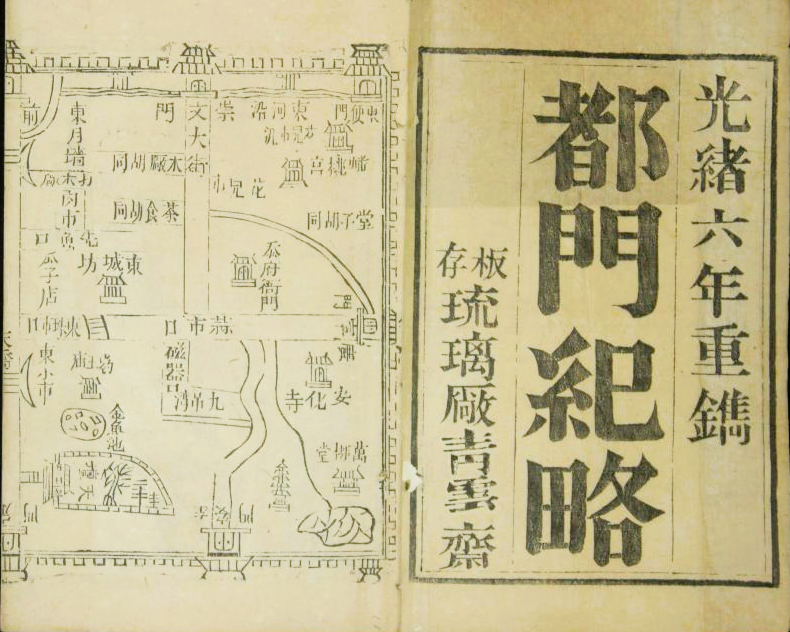 光緒六年重鐫
都門紀略
板存
琉璃厰青雲齋
東便門
東河沿
崇文門
大街
蟠桃宮
花兒市
堂子胡同
木厰胡同
茶食胡同
東月墻
前
肉市
瓜子店
東城坊
東小市
蒜市口
磁器口
九吊灣
安化寺
萬柳堂
金魚池
天壇